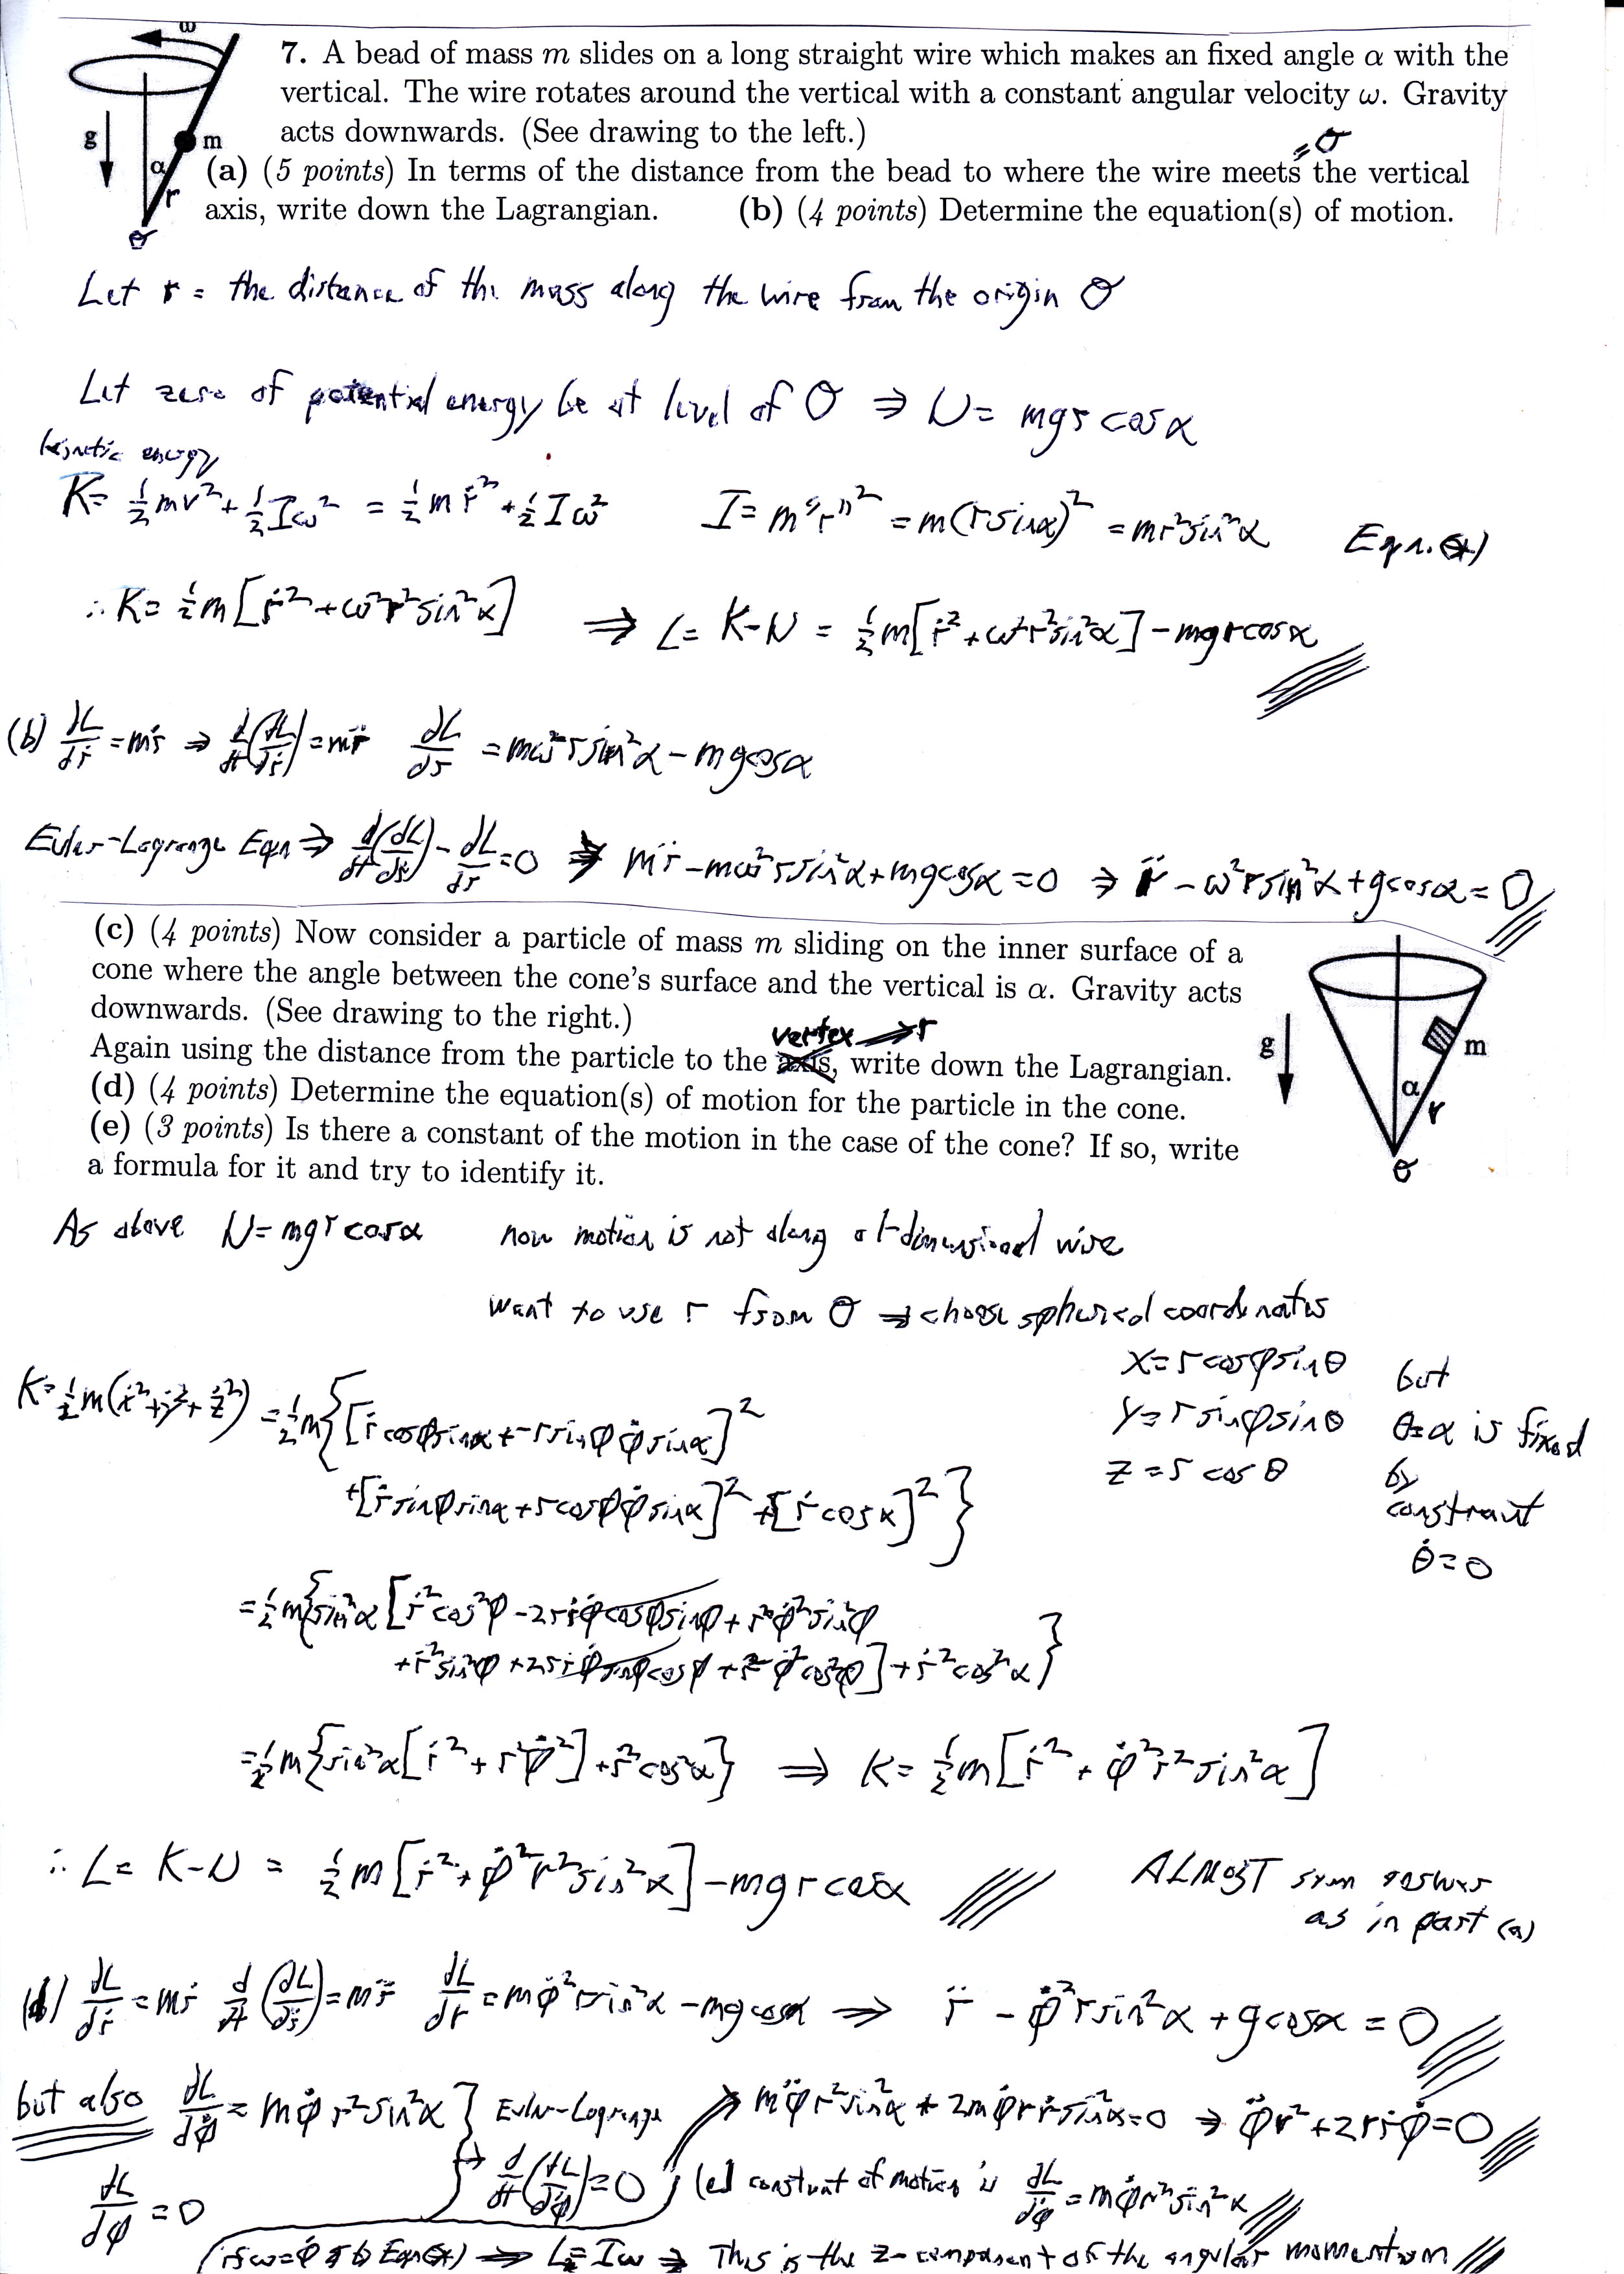 ω
g
m
α
r
O
7. A bead of mass m slides on a long straight wire which makes an fixed angle α with the
vertical. The wire rotates around the vertical with a constant angular velocity ω. Gravity
acts downwards. (See drawing to the left.)
= O
(a) (5 points) In terms of the distance from the bead to where the wire meets the vertical
axis, write down the Lagrangian. (b) (4 points) Determine the equation(s) of motion.
Let r = the distance of the mass along the wire from the origin O
Let zero of potential energy be at level of O ⇒ U = mgr cosα
kinetic energy
K = ½mv² + ½Iω² = ½mṙ² + ½Iω² I = m"r"² = m(r sinα)² = mr²sin²α Eqn.(*)
∴ K = ½m[ṙ² + ω²r²sin²α] ⇒ L = K-U = ½m[ṙ² + ω²r²sin²α] - mgr cosα
(b) dL/dṙ = mṙ ⇒ d/dt(dL/dṙ) = mr̈ dL/dr = mω²r sin²α - mg cosα
Euler-Lagrange Eqn ⇒ d/dt(dL/dṙ) - dL/dr = 0 ⇒ mr̈ - mω²r sin²α + mg cosα = 0 ⇒ r̈ - ω²r sin²α + g cosα = 0
(c) (4 points) Now consider a particle of mass m sliding on the inner surface of a
cone where the angle between the cone's surface and the vertical is α. Gravity acts
downwards. (See drawing to the right.)
vertex → r
Again using the distance from the particle to the axis, write down the Lagrangian.
(d) (4 points) Determine the equation(s) of motion for the particle in the cone.
(e) (3 points) Is there a constant of the motion in the case of the cone? If so, write
a formula for it and try to identify it.
g
m
α
r
O
As above U = mgr cosα now motion is not along a 1-dimensional wire
want to use r from O ⇒ choose spherical coordinates
x = r cosφ sinθ but
y = r sinφ sinθ θ = α is fixed
z = r cosθ by
constraint
θ̇ = 0
K = ½m(ẋ² + ẏ² + ż²) = ½m{[ṙ cosφ sinα + -r sinφ φ̇ sinα]²
+ [ṙ sinφ sinα + r cosφ φ̇ sinα]² + [ṙ cosα]²}
= ½m{sin²α[ṙ²cos²φ - 2rṙφ̇ cosφ sinφ + r²φ̇²sin²φ
+ ṙ²sin²φ + 2rṙφ̇ sinφ cosφ + r²φ̇²cos²φ] + ṙ²cos²α}
= ½m{sin²α[ṙ² + r²φ̇²] + ṙ²cos²α} ⇒ K = ½m[ṙ² + φ̇²r²sin²α]
∴ L = K-U = ½m[ṙ² + φ̇²r²sin²α] - mgr cosα
ALMOST same answer
as in part (a)
(d) dL/dṙ = mṙ d/dt(dL/dṙ) = mr̈ dL/dr = mφ̇²r sin²α - mg cosα ⇒ r̈ - φ̇²r sin²α + g cosα = 0
but also dL/dφ̇ = mφ̇r²sin²α } Euler-Lagrange ⇒ mφ̈r²sin²α + 2mφ̇rṙ sin²α = 0 ⇒ φ̈r² + 2rṙφ̇ = 0
dL/dφ = 0 → d/dt(dL/dφ̇) = 0 (e) constant of motion is dL/dφ̇ = mφ̇r²sin²α
if ω = φ̇ Eqn(*) ⇒ L_z = Iω ⇒ This is the z-component of the angular momentum